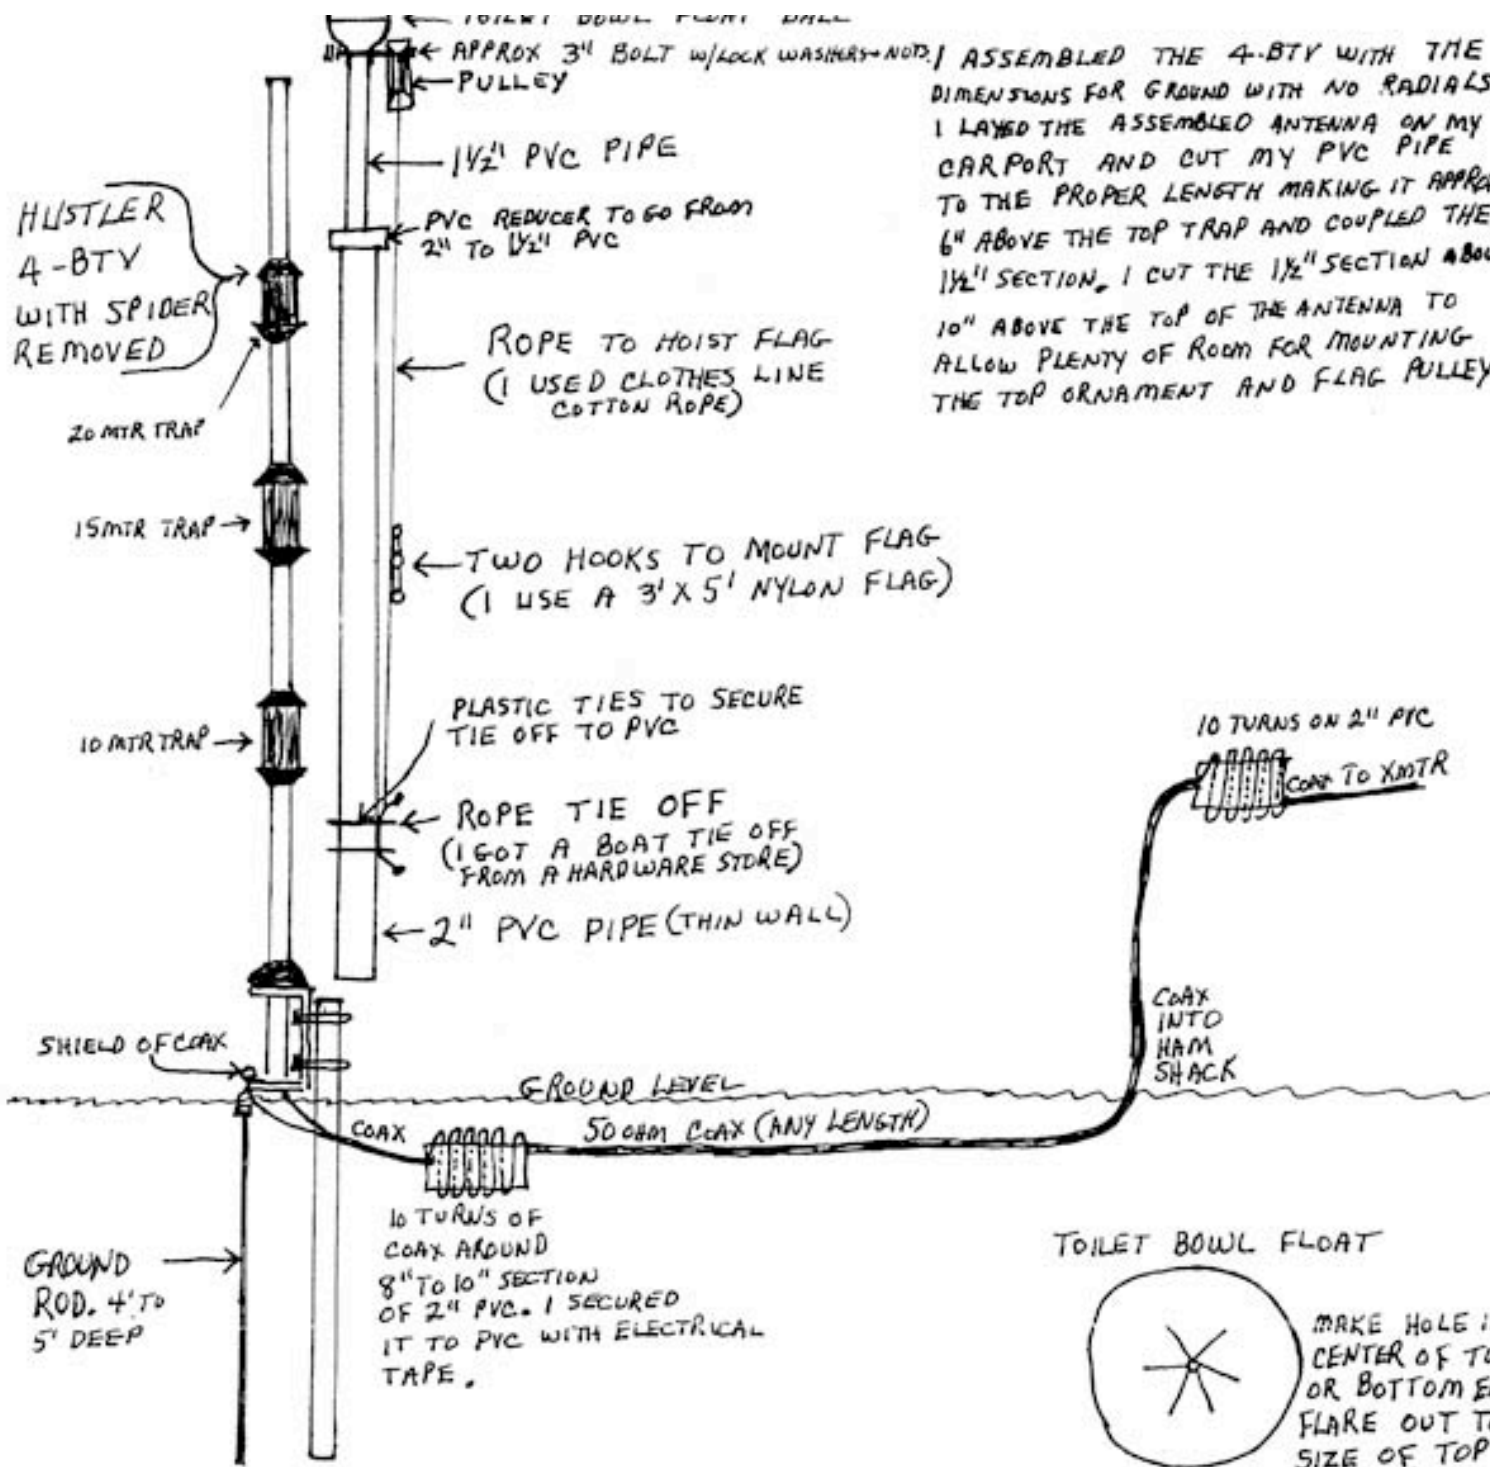 TOILET BOWL FLOAT BALL
APPROX 3" BOLT W/LOCK WASHERS+NUTS.
PULLEY
1½" PVC PIPE
PVC REDUCER TO GO FROM
2" TO 1½" PVC
HUSTLER
4-BTV
WITH SPIDER
REMOVED
ROPE TO HOIST FLAG
(I USED CLOTHES LINE
COTTON ROPE)
20 MTR TRAP
15 MTR TRAP
TWO HOOKS TO MOUNT FLAG
(I USE A 3' X 5' NYLON FLAG)
PLASTIC TIES TO SECURE
TIE OFF TO PVC
10 MTR TRAP
ROPE TIE OFF
(I GOT A BOAT TIE OFF
FROM A HARDWARE STORE)
2" PVC PIPE (THIN WALL)
I ASSEMBLED THE 4-BTV WITH THE
DIMENSIONS FOR GROUND WITH NO RADIALS
I LAYED THE ASSEMBLED ANTENNA ON MY
CARPORT AND CUT MY PVC PIPE
TO THE PROPER LENGTH MAKING IT APPRO
6" ABOVE THE TOP TRAP AND COUPLED THE
1½" SECTION. I CUT THE 1½" SECTION ABOU
10" ABOVE THE TOP OF THE ANTENNA TO
ALLOW PLENTY OF ROOM FOR MOUNTING
THE TOP ORNAMENT AND FLAG PULLEY
10 TURNS ON 2" PVC
COAX TO XMTR
COAX
INTO
HAM
SHACK
SHIELD OF COAX
GROUND LEVEL
COAX
50 OHM COAX (ANY LENGTH)
10 TURNS OF
COAX AROUND
8" TO 10" SECTION
OF 2" PVC. I SECURED
IT TO PVC WITH ELECTRICAL
TAPE.
GROUND
ROD. 4' TO
5' DEEP
TOILET BOWL FLOAT
MAKE HOLE I
CENTER OF TO
OR BOTTOM E
FLARE OUT T
SIZE OF TOP